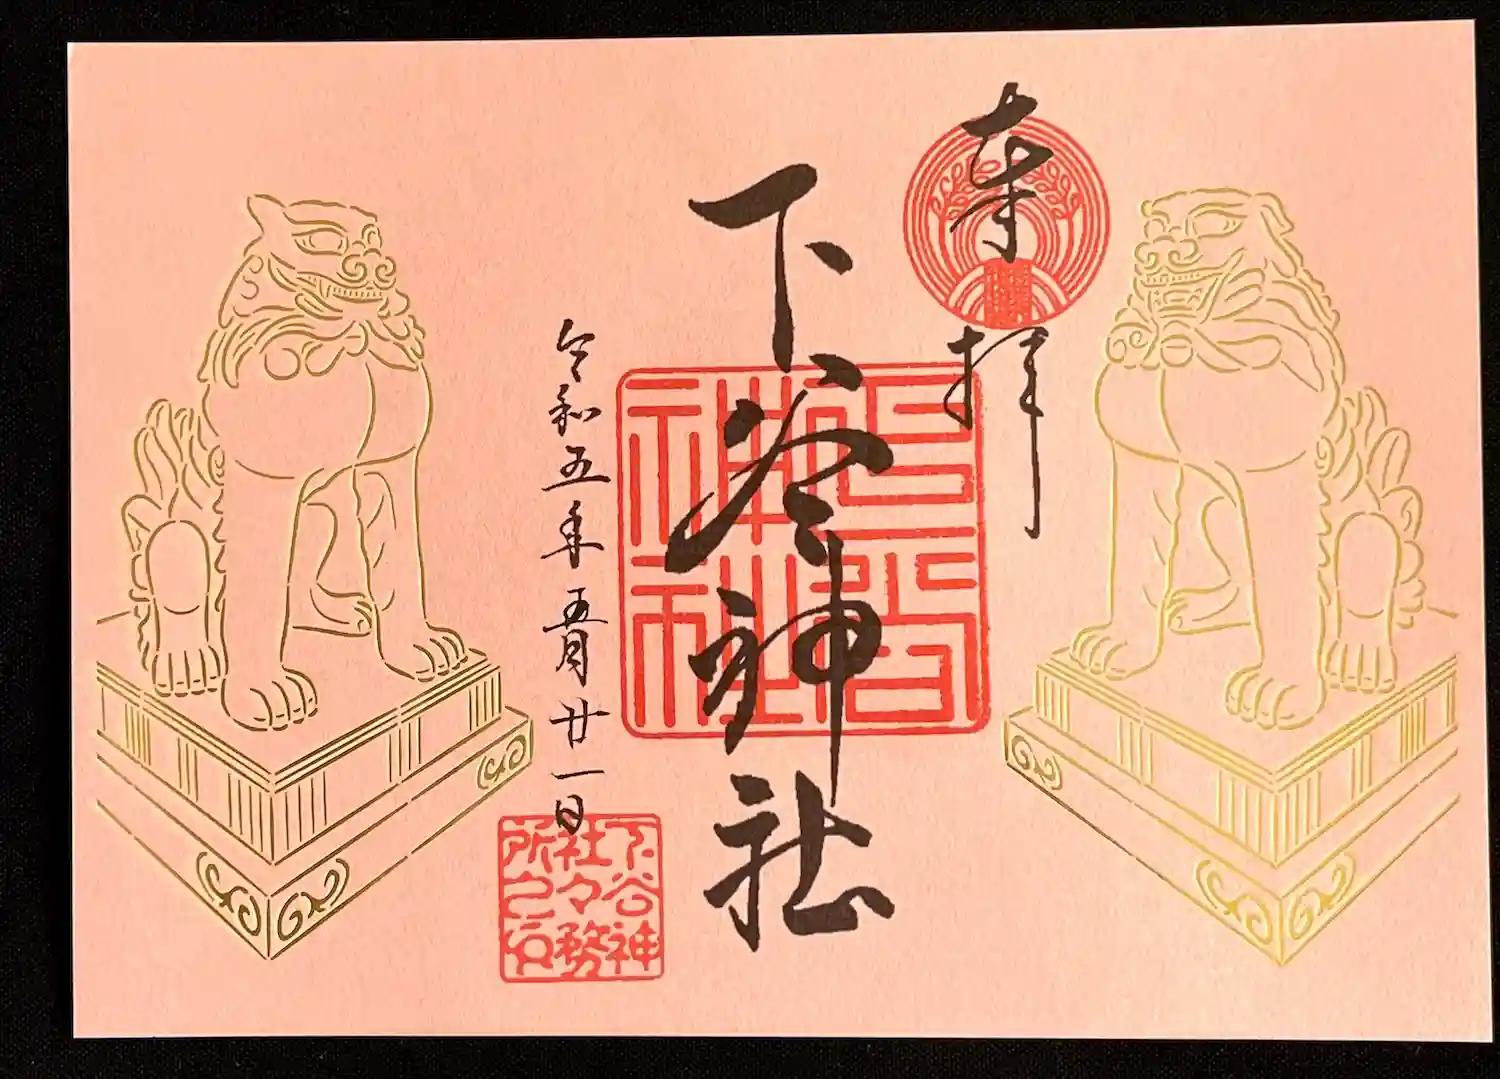 奉拝
下谷神社
令和五年五月廿一日
下谷神
社々務
所之印